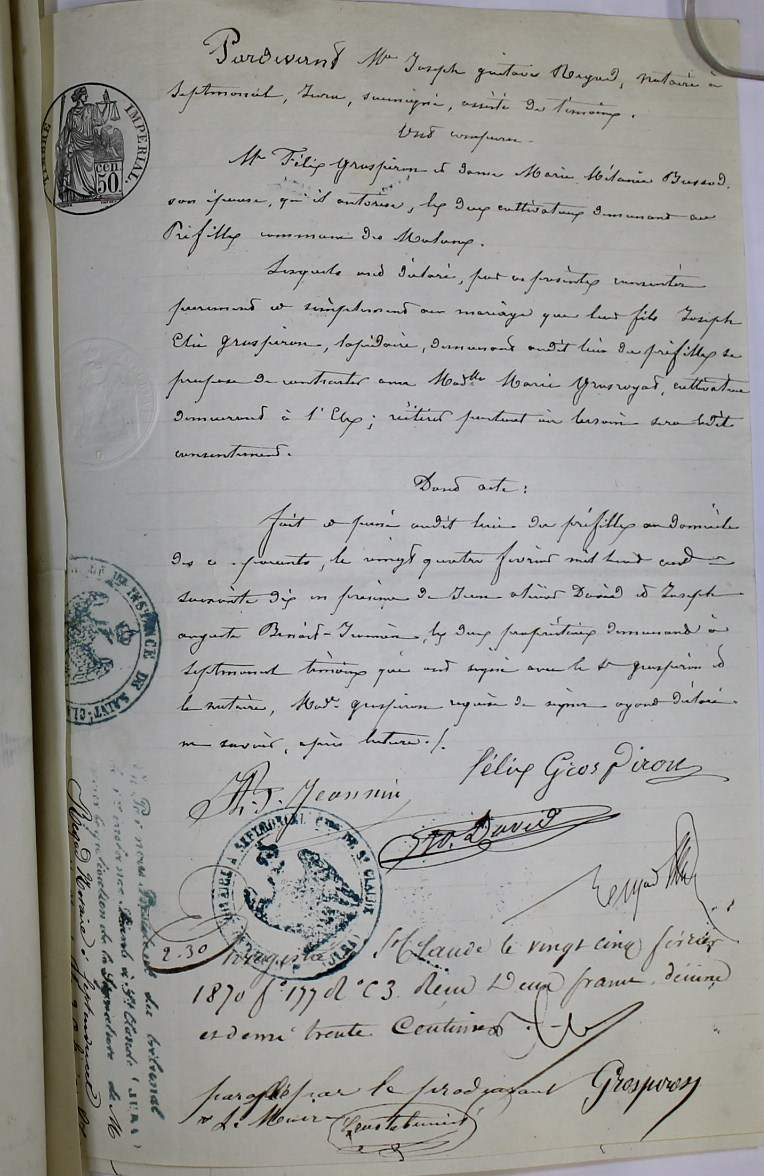 Pardevant Me Joseph gustave Regad, notaire à
Septmoncel, Jura, soussigné, assisté de témoins.
Ont comparu
Mr Félix grospiron et dame Marie Mélanie Bussod,
son épouse, qu'il autorise, les deux cultivateurs demeurant au
Préfillex commune des Molunes.
Lesquels ont déclaré, par ces présentes consentir
purement et simplement au mariage que leur fils Joseph
Elie grospiron, lapidaire, demeurant audit lieu du préfillex se
propose de contracter avec Madelle Marie grosregad, cultivatrice
demeurant à l'Etx; réitérer partout où besoin sera ledit
consentement.
Dont acte:
fait et passé audit lieu du préfillex au domicile
des parents, le vingt quatre février mil huit cent
soixante dix en présence de David et Joseph
auguste Benoit-Jeannin, les deux propriétaires demeurant à
Septmoncel témoins qui ont signé avec le sr grospiron et
le notaire, Made grospiron requise de signer ayant déclaré
ne savoir, après lecture ./.
Félix Gros Piron
Jeannin
David
Regad
2.30
Enregistré à St Claude le vingt cinq février
1870 fo 177 Ro C 3. Reçu Deux francs, décime
et demi trente Centimes
paraphé par le produisant Grospiron
et Le Maire
TIMBRE IMPERIAL.
50 cen.
INSTANCE DE SAINT-CL
NOTAIRE A SEPTMONCEL ARR. DE ST CLAUDE (JURA)
Vu Par nous Président du tribunal
de 1re instance séant à St Claude (JURA)
pour légalisation de la Signature de M
Regad Notaire à Septmoncel